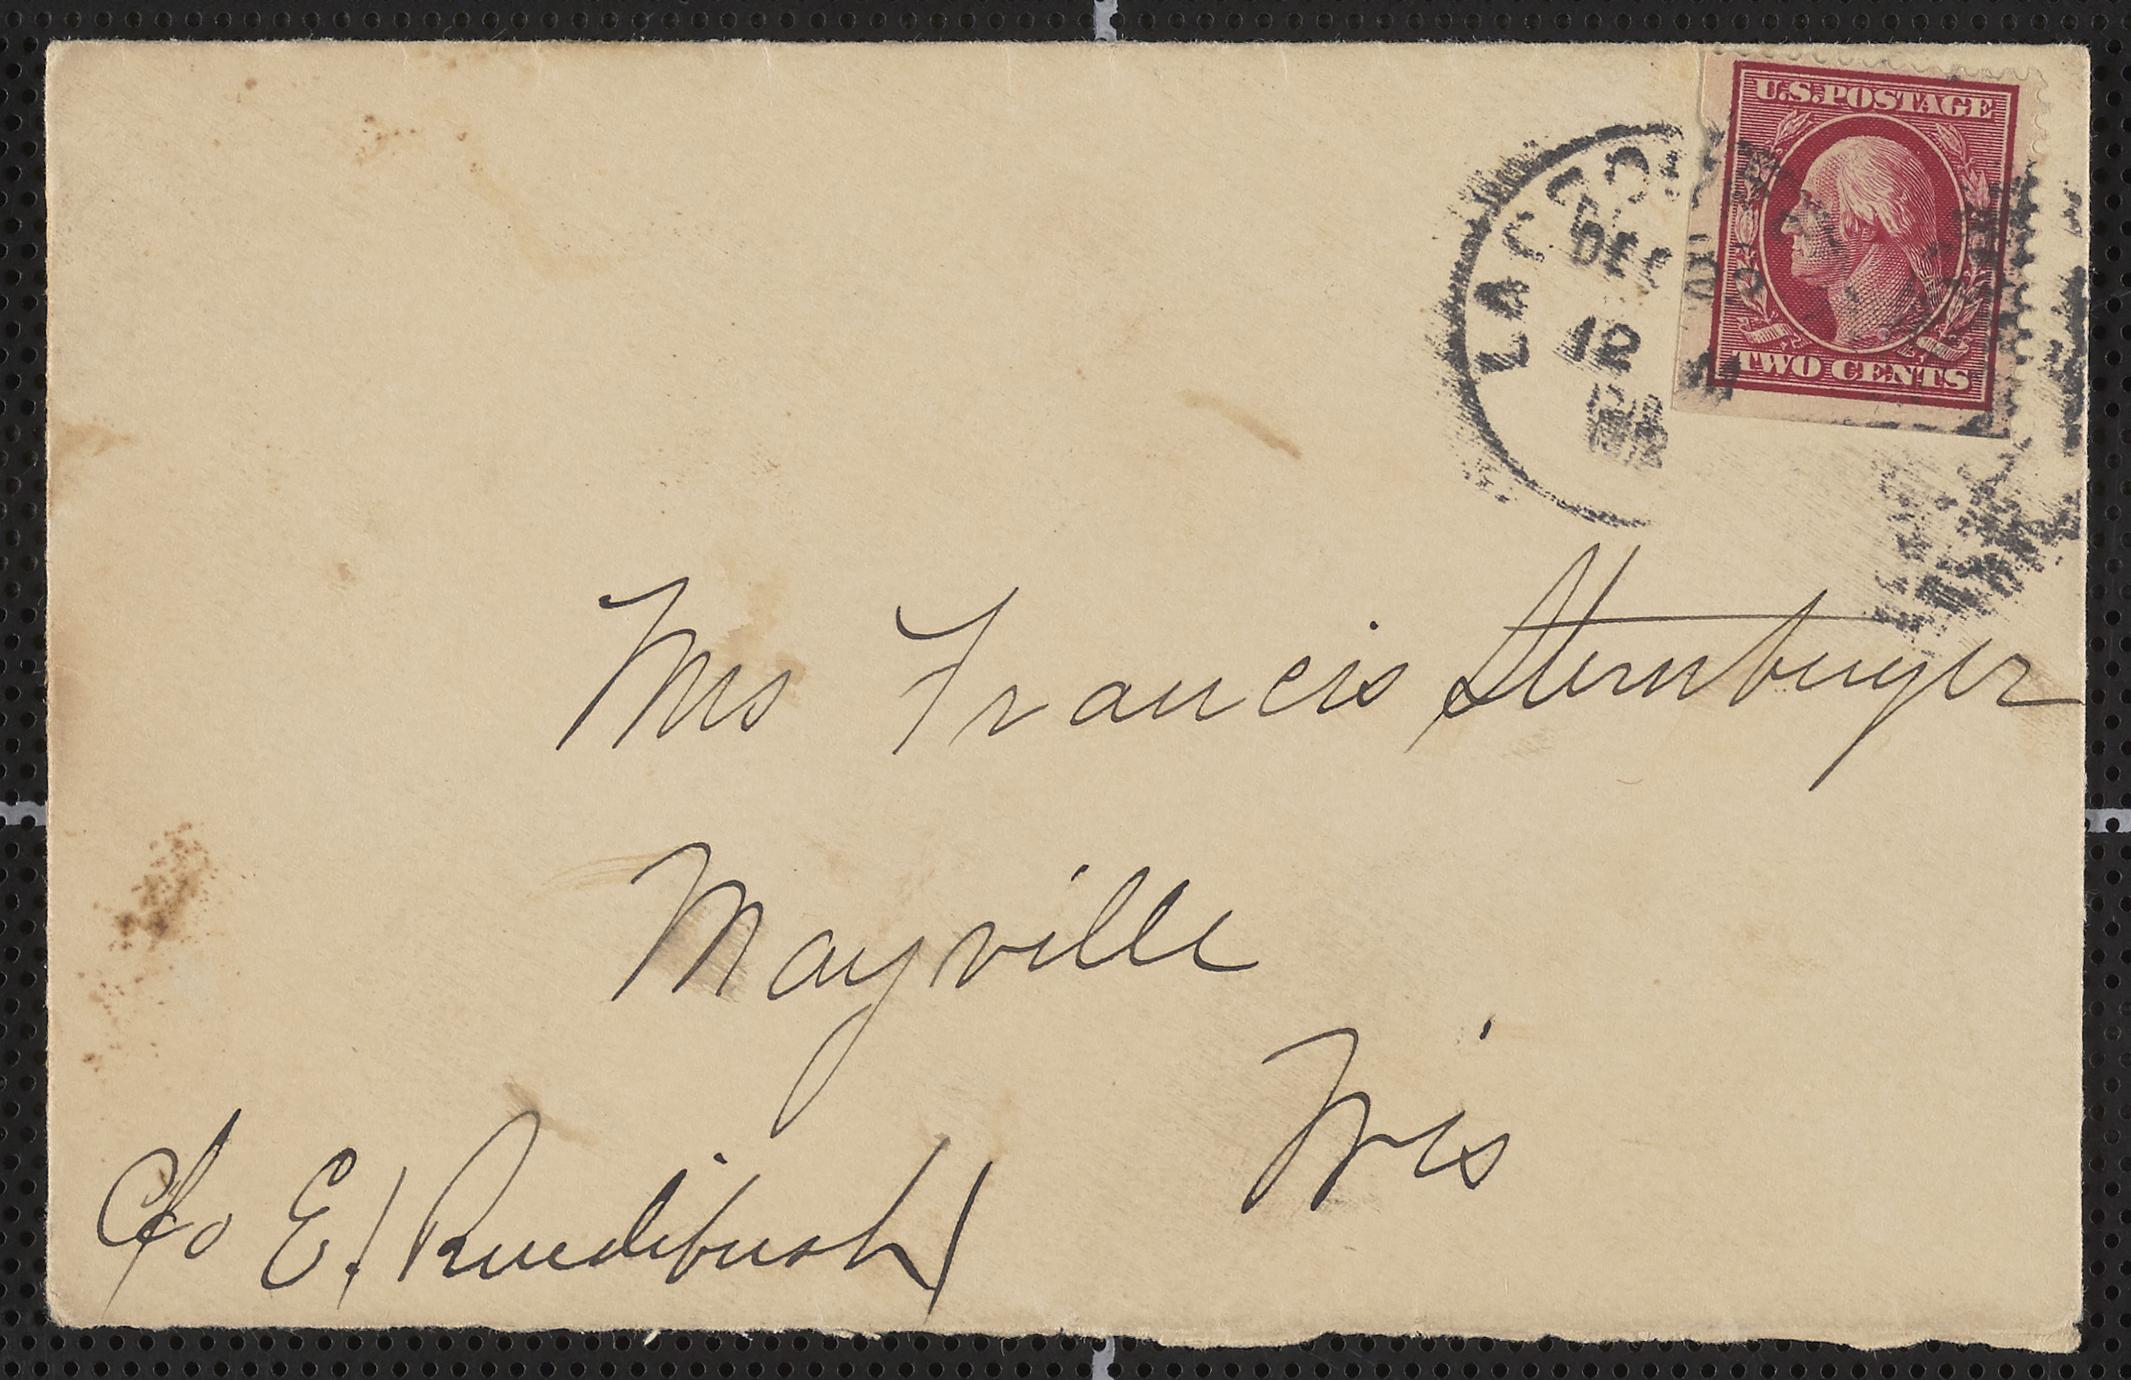 U.S. POSTAGE
TWO CENTS
LA CROSSE
DEC
12
Mrs Francis Sternberger
Mayville
Wis
c/o E. Ruedebusch